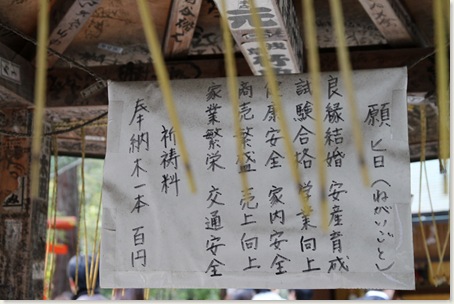 願ヒ目(ねがいごと)
良縁結婚 安産育成
試験合格 学業向上
健康安全 家内安全
商売繁盛 売上向上
家業繁栄 交通安全
祈祷料
奉納木一本 百円